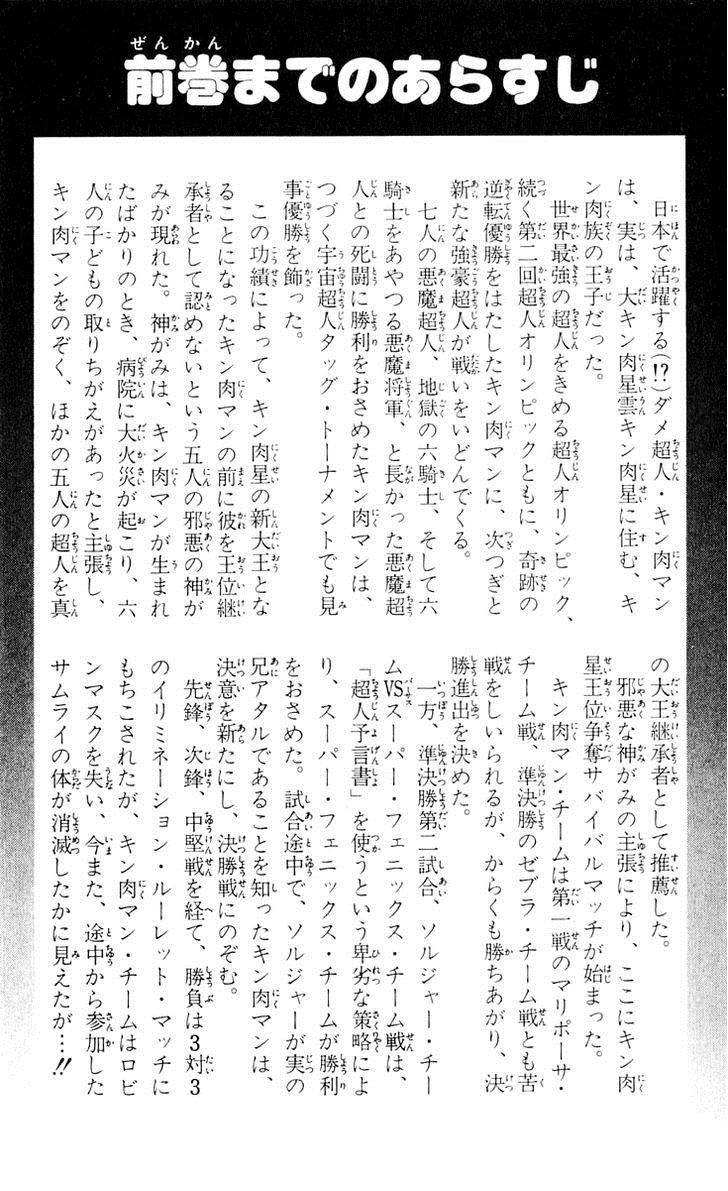 前巻までのあらすじ
日本で活躍する(!?)ダメ超人・キン肉マン
は、実は、大キン肉星雲キン肉星に住む、キ
ン肉族の王子だった。
世界最強の超人をきめる超人オリンピック、
続く第二回超人オリンピックともに、奇跡の
逆転優勝をはたしたキン肉マンに、次つぎと
新たな強豪超人が戦いをいどんでくる。
七人の悪魔超人、地獄の六騎士、そして六
騎士をあやつる悪魔将軍、と長かった悪魔超
人との死闘に勝利をおさめたキン肉マンは、
つづく宇宙超人タッグ・トーナメントでも見
事優勝を飾った。
この功績によって、キン肉星の新大王とな
ることになったキン肉マンの前に彼を王位継
承者として認めないという五人の邪悪の神が
みが現れた。神がみは、キン肉マンが生まれ
たばかりのとき、病院に大火災が起こり、六
人の子どもの取りちがえがあったと主張し、
キン肉マンをのぞく、ほかの五人の超人を真
の大王継承者として推薦した。
邪悪な神がみの主張により、ここにキン肉
星王位争奪サバイバルマッチが始まった。
キン肉マン・チームは第一戦のマリポーサ・
チーム戦、準決勝のゼブラ・チーム戦とも苦
戦をしいられるが、からくも勝ちあがり、決
勝進出を決めた。
一方、準決勝第二試合、ソルジャー・チー
ムVSスーパー・フェニックス・チーム戦は、
「超人予言書」を使うという卑劣な策略によ
り、スーパー・フェニックス・チームが勝利
をおさめた。試合途中で、ソルジャーが実の
兄アタルであることを知ったキン肉マンは、
決意を新たにし、決勝戦にのぞむ。
先鋒、次鋒、中堅戦を経て、勝負は3対3
のイリミネーション・ルーレット・マッチに
もちこされたが、キン肉マン・チームはロビ
ンマスクを失い、今また、途中から参加した
サムライの体が消滅したかに見えたが…!!